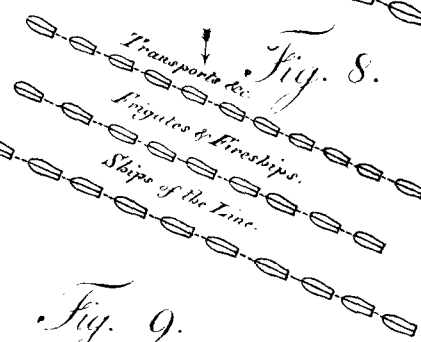 Fig. 8.
Transports &c.
Frigates & Fireships.
Ships of the Line.
Fig. 9.